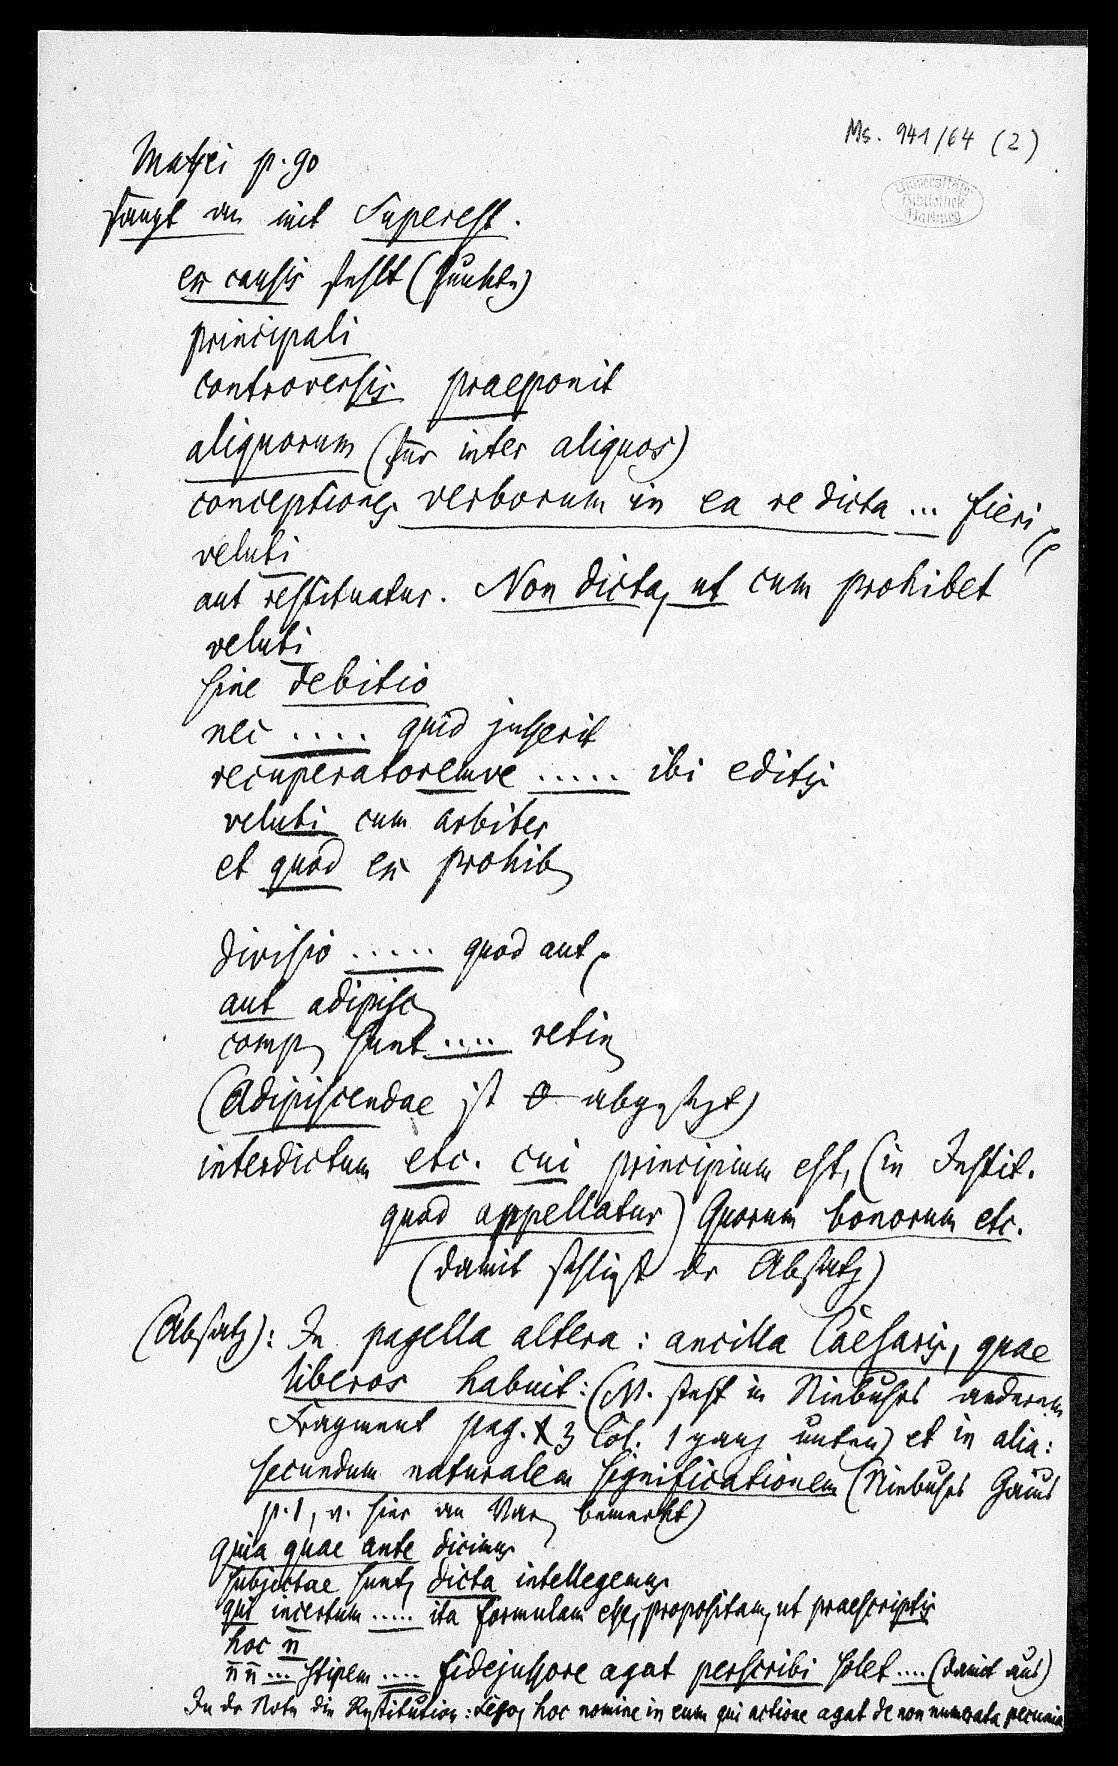 Ms. 941/64 (2)
Universitäts
Bibliothek
Marburg
Maffei p. 90
fängt an mit Superest.
ex causis fehlt (Punkte)
principali
controversis praeponit
aliquorum (für inter aliquos)
conceptiones verborum in ea re dicta ... fieri
veluti
aut restituatur. Non dicta, ut cum prohibet
veluti
sine debitio
nec .... quid jusserit
recuperatoremve ..... ibi editis
veluti cum arbiter
et quod ex prohib
divisio ..... quod aut
aut adipisc
comp sunt .... retin
(Adipiscendae ist abgesetzt)
interdictum etc. cui principium est, (in Instit.
quod appellatur) Quorum bonorum etc.
(damit schließt der Absatz)
(Absatz): In pagella altera: ancilla Caesaris, quae
liberos habuit: (N. steht in Niebuhrs anderem
Fragment pag. 3 Col. 1 ganz unten) et in alia:
secundum naturalem significationem (Niebuhrs Gaius
p. 1, v. hier am bemerkt)
quia quae ante dicimus
subjectae sunt, dicta intellegemus
qui incertum ..... ita formulam esse, propositam, ut praescriptis
hoc n̅
n̅ n̅ ... stipem .... fidejussore agat perscribi solet .... (damit aus)
In der Note die Restitution: hoc nomine in eum qui actione agat de non numerata pecunia